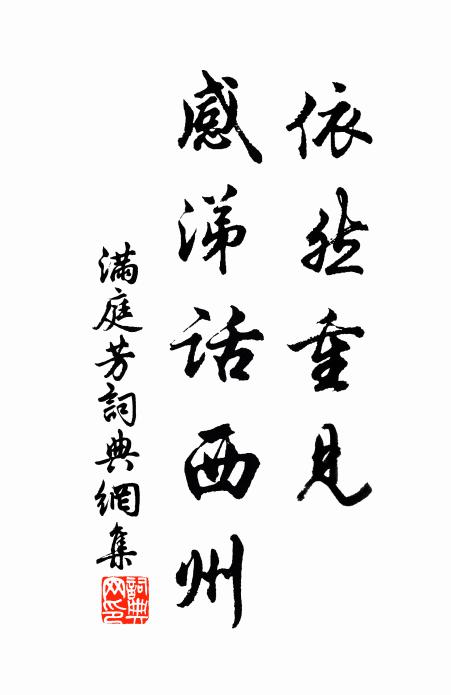 依然重見
感涕話西州
滿庭芳詞典網集
詞典網印